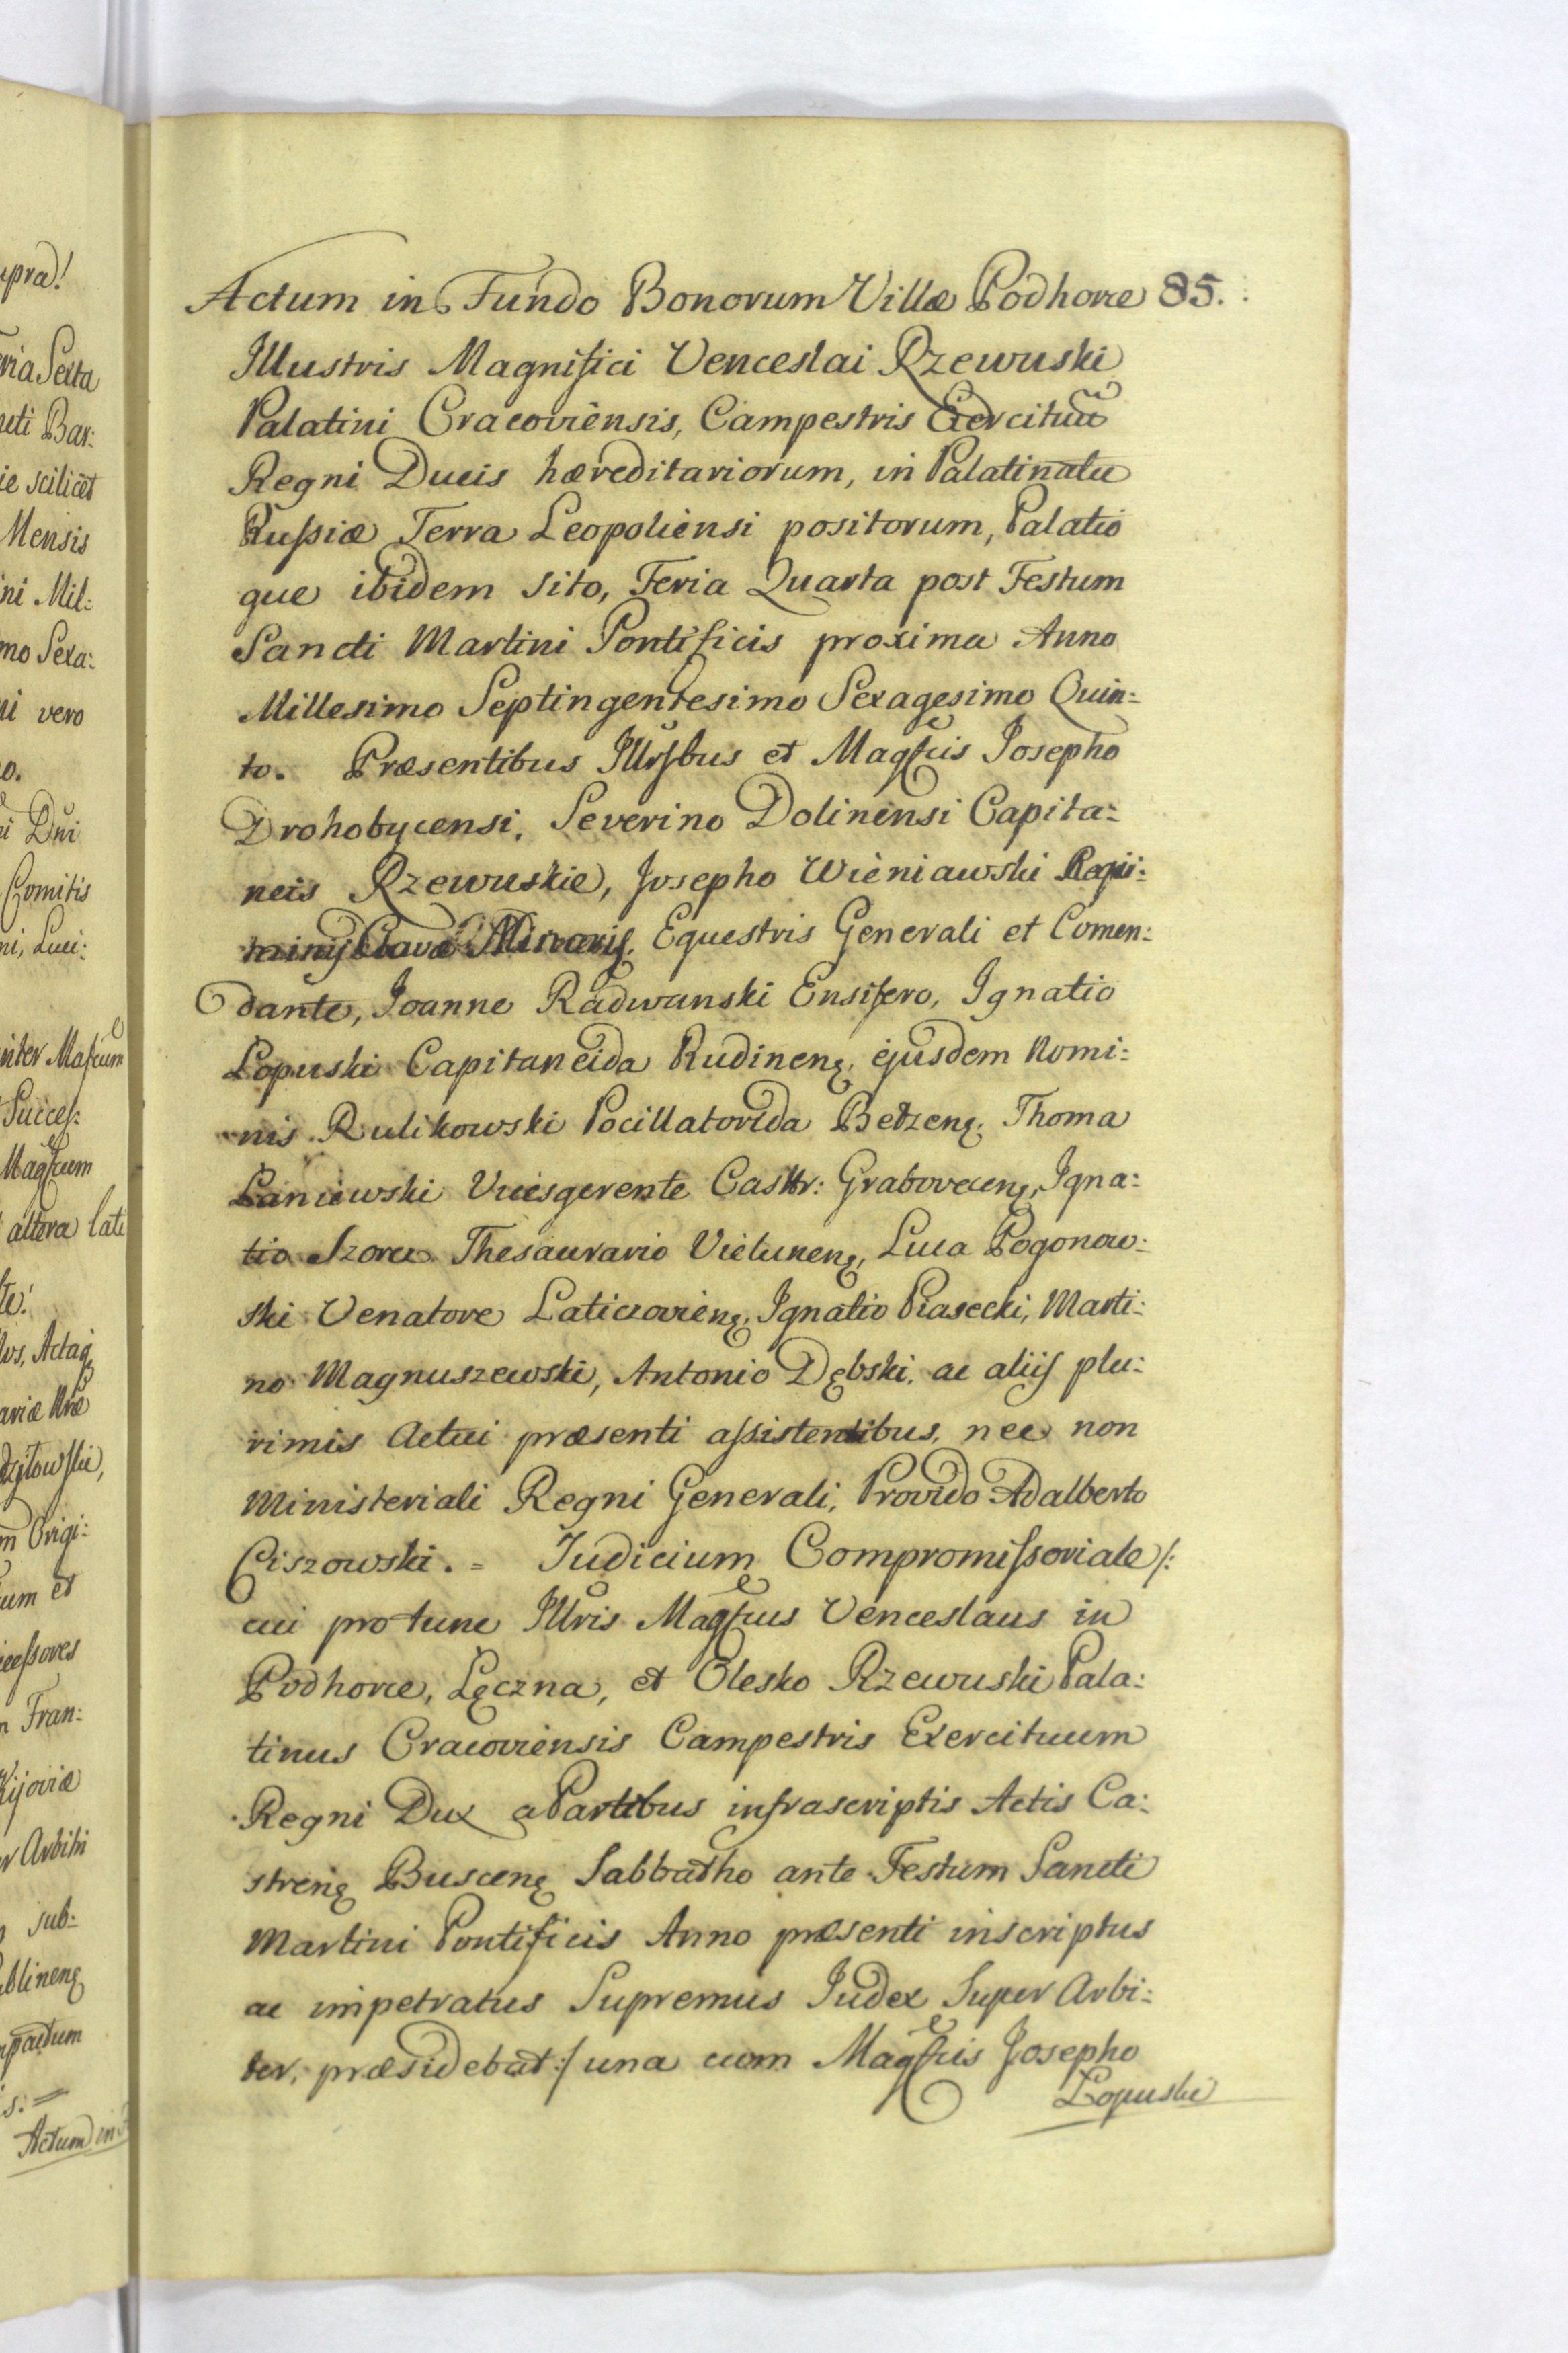 upra!
ria Sexta
ncti Bar:
ie scilicet
Mensis
ni Mil:
mo Sexa:
ni vero
o.
i Dni
Comitis
ni, Luci:
inter Mafcum
Succes:
Magfcum
altera lati
te!
los, Actaq
ariæ
m Origi:
um et
ccessores
n Fran:
Kijoviæ
r Arbitri
sub:
ublinenę
pactum
s: =
Actum in
Actum in Fundo Bonorum Villæ Podhorce 85.
Illustris Magnifici Venceslai Rzewuski
Palatini Cracoviensis, Campestris Exercituũ
Regni Ducis hæreditariorum, in Palatinatu
Russiæ Terra Leopoliensi positorum, Palatio
que ibidem sito, Feria Quarta post Festum
Sancti Martini Pontificis proxima Anno
Millesimo Septingentesimo Sexagesimo Quin:
to. Præsentibus Illrsbus et Magfcis Josepho
Drohobycensi, Severino Dolinensi Capita:
neis Rzewuskie, Josepho Wieniawski Regii:
Clavæ Equestris Generali et Comen:
dante, Joanne Radwanski Ensifero, Ignatio
Lopuski Capitaneida Rudinenę, ejusdem Nomi:
nis Rulikowski Pocillatorida Betzenę, Thoma
Laniewski Vicesgerente Castr: Grabovecenę, Igna:
tio Szorc Thesaurario Vielunenę, Luca Pogonow:
ski Venatore Laticzovienę, Ignatio Piasecki, Marti:
no Magnuszewski, Antonio Dębski, ac aliis plu:
rimis Actui præsenti assistentibus, nec non
Ministeriali Regni Generali, Provido Adalberto
Ciszowski. = Judicium Compromissoriale /:
cui pro tunc Illris Magfcus Venceslaus in
Podhorce, Lęczna, et Olesko Rzewuski Pala:
tinus Cracoviensis Campestris Exercituum
Regni Dux a Partibus infrascriptis Actis Ca:
strenę Buscenę Sabbatho ante Festum Sancti
Martini Pontificis Anno præsenti inscriptus
ac impetratus Supremus Judex Super Arbi:
ter, præsidebat :/ una cum Magfcis Josepho
Lopuski